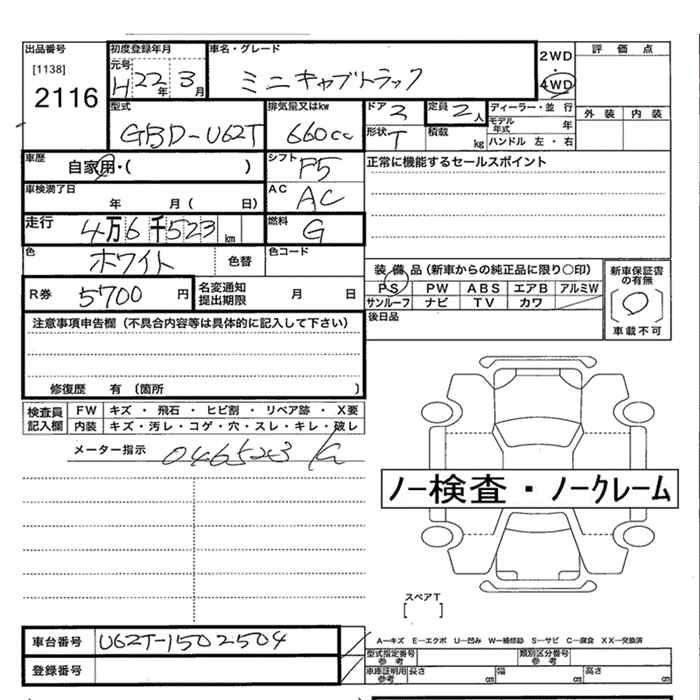 出品番号 初度登録年月 車名・グレード 2WD 評価点
[1138] 元号 ・
2116 H 22年 3月 ミニキャブトラック 4WD
型式 排気量又はkw ドア 2 定員 2人 ディーラー・並行 外装 内装
GBD-U62T 660cc 形状 T 積載 kg モデル年式 年
ハンドル 左・右
車歴 自家用・( ) シフト F5 正常に機能するセールスポイント
車検満了日 年 月( 日) AC AC
走行 4万6千523km 燃料 G
色 ホワイト 色替 色コード
装備品(新車からの純正品に限り○印) 新車保証書の有無
R券 5700円 名変通知提出期限 月 日 PS PW ABS エアB アルミW
サンルーフ ナビ TV カワ 〔○〕
注意事項申告欄(不具合内容等は具体的に記入して下さい) 後日品 車載不可
修復歴 有(箇所 )
検査員記入欄 FW キズ・飛石・ヒビ割・リペア跡・X要
内装 キズ・汚レ・コゲ・穴・スレ・キレ・破レ
メーター指示 046523
ノー検査・ノークレーム
スペアT
[ ]
車台番号 U62T-1502504 A-キズ E-エクボ U-凹み W-補修跡 S-サビ C-腐食 XX-交換済
型式指定番号 参考 類別区分番号 参考
登録番号 車庫証明用 参考 長さ cm 幅 cm 高さ cm